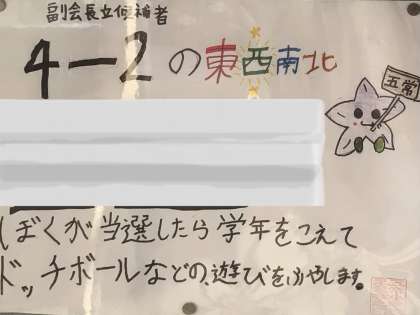 副会長立候補者
4-2の東西南北
五常
ぼくが当選したら学年をこえて
ドッチボールなどの、遊びをふやします。